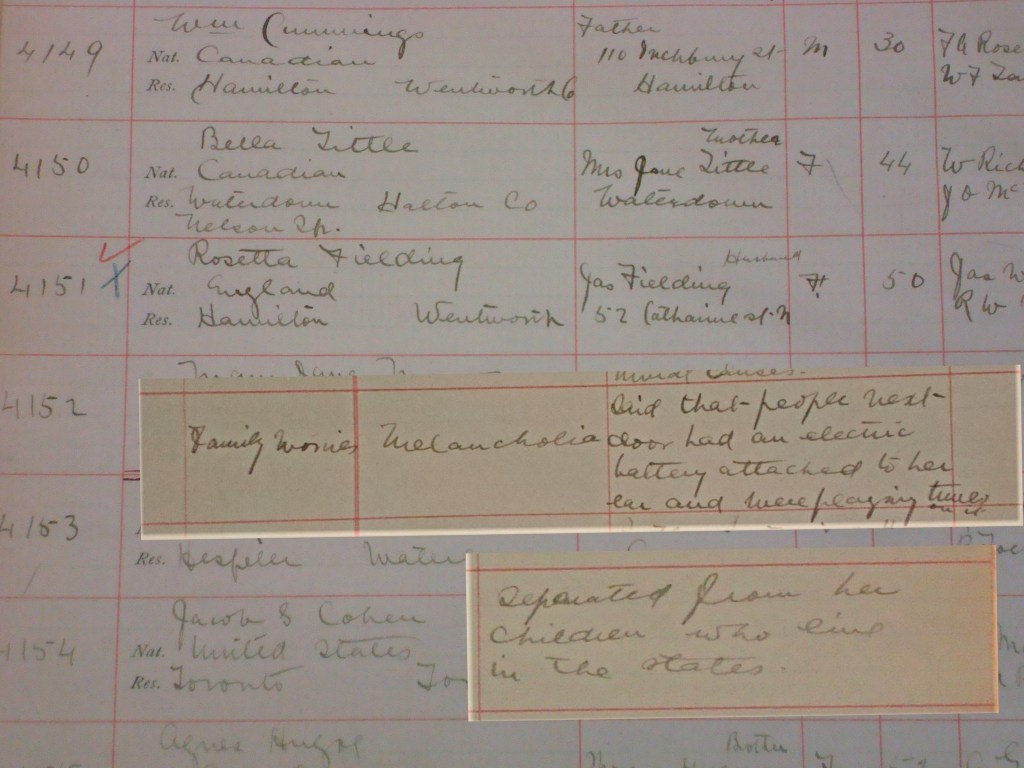 4149
Wm Cummings
Nat. Canadian
Res. Hamilton Wentworth Co
Father
110 Inchbury st
Hamilton
M
30
W F
4150
Bella Tittle
Nat. Canadian
Res. Waterdown Halton Co
Nelson Tp.
Mother
Mrs Jane Tittle
Waterdown
F
44
W Rich
J O Mc
4151 X
Rosetta Fielding
Nat. England
Res. Hamilton Wentworth
Husband
Jas Fielding
52 Catharine st N
F
50
Jas W
R W
4152
Family Worries
Melancholia
Said that people next
door had an electric
battery attached to her
ear and were playing tunes
on it
4153
Res. Hespeler Water
separated from her
children who live
in the states.
4154
Jacob S Cohen
Nat. United States
Res. Toronto To
Agnes